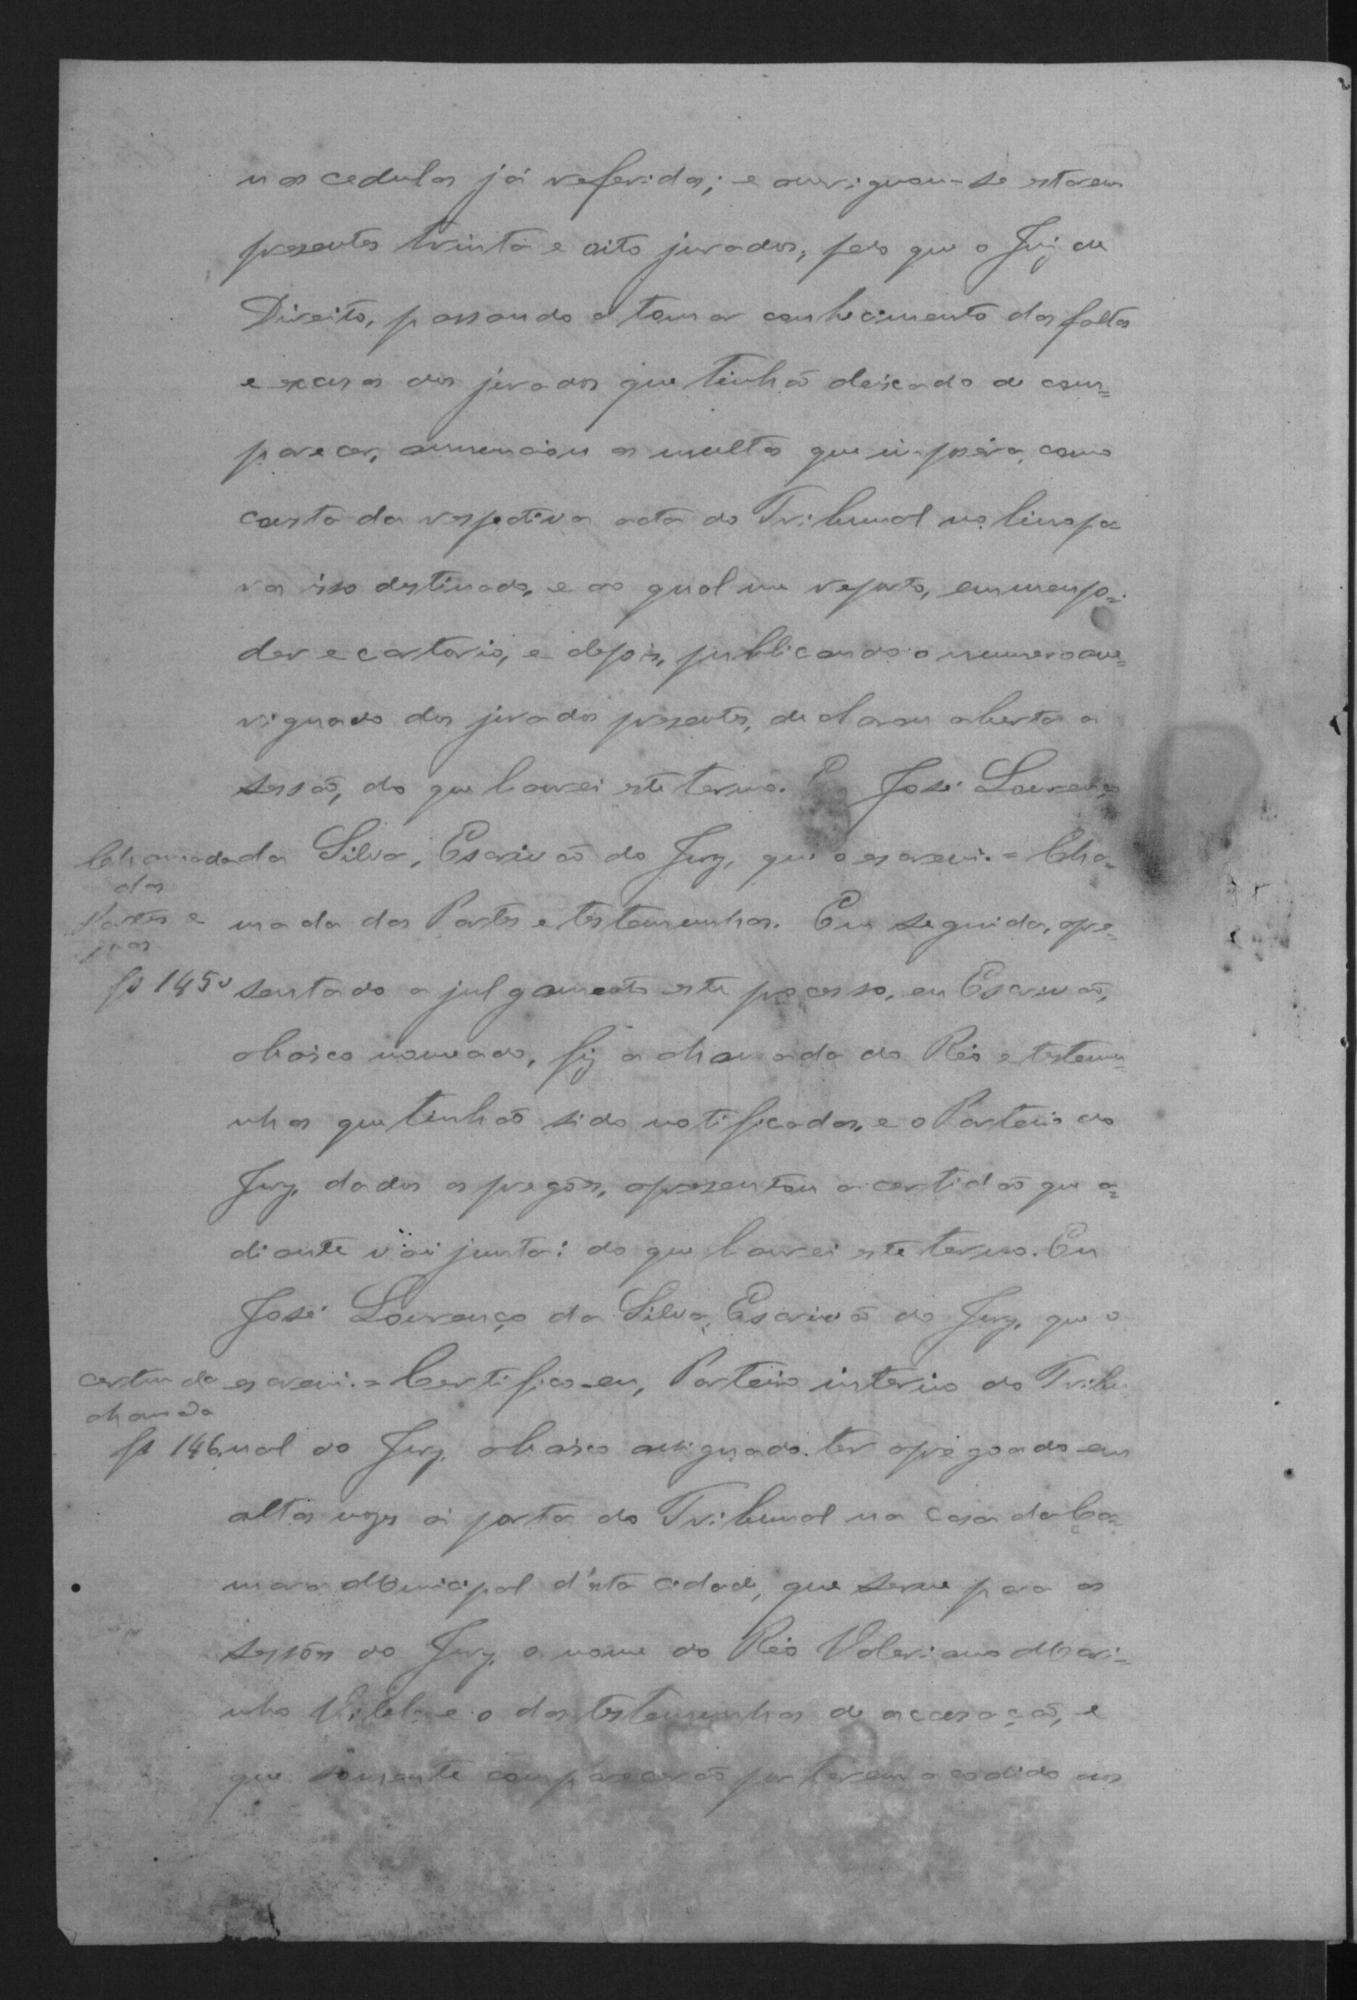 nas cedulas já referidas; e averiguou-se estarem
presentes trinta e oito jurados, pelo que o Juiz de
Direito, passando a tomar conhecimento das faltas
e excusas dos jurados que tinhão deixado de com=
parecer, annunciou as multas que imposéra, como
consta da respectiva acta do Tribunal no livro pa
ra isso destinado, e ao qual me reporto, em meu po=
der e cartorio, e depois, publicando o numero ave=
riguado dos jurados presentes, declarou aberta a
sessão, do que lavrei este termo. Eu José Lourenço
Chamada
das
Partes e
da Silva, Escrivão do Jury, que o escrevi. = Cha=
mada das Partes e testemunhas. Em seguida, apre=
fs 145v
sentado a julgamento este processo, eu Escrivão,
abaixo nomeado, fiz a chamada do Réo e testemu=
nhas que tinhão sido notificadas, e o Porteiro do
Jury, dados os pregões, apresentou a certidão que a=
diante vai junta: do que lavrei este termo. Eu
José Lourenço da Silva, Escrivão do Jury, que o
certidão da
chamada
fs 146
escrevi. = Certifico eu, Porteiro interino do Tribu=
nal do Jury, abaixo assignado ter apregoado em
altas vozes á porta do Tribunal na Casa da Ca=
mara Municipal d'esta cidade, que serve para as
sessões do Jury, o nome do Réo Valeriano Mari=
nho Vilela e o das testemunhas de accusação, e
que somente comparecerão por terem acodido aos